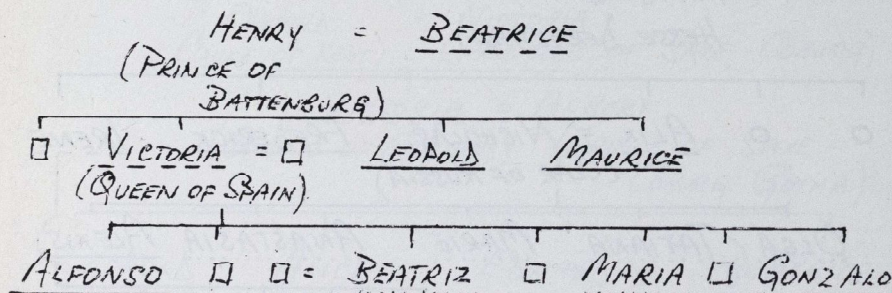 HENRY = BEATRICE
(PRINCE OF
BATTENBURG)
VICTORIA = LEOPOLD MAURICE
(QUEEN OF SPAIN)
ALFONSO = BEATRIZ MARIA GONZALO